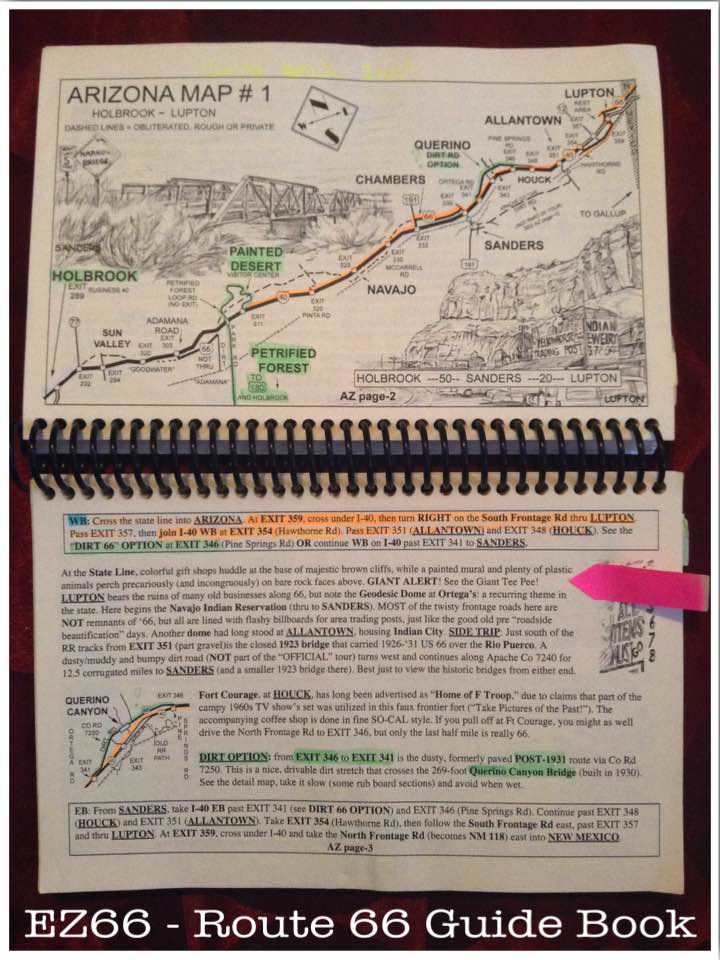 ARIZONA MAP # 1
HOLBROOK ~ LUPTON
DASHED LINES = OBLITERATED, ROUGH OR PRIVATE
NARROW BRIDGE
LUPTON
REST AREA
ALLANTOWN
PINE SPRINGS RD
EXIT 359
EXIT 357
EXIT 354
EXIT 351
QUERINO
DIRT RD OPTION
EXIT 346
EXIT 348
40
HAWTHORNE RD
HOUCK
ORTEGA RD
EXIT 341
EXIT 343
EXIT 339
CHAMBERS
191
66
EXIT 333
TO GALLUP
SANDERS
191
SANDERS
HOLBROOK
EXIT 289
BUSINESS 40
PAINTED DESERT
VISITOR CENTER
PETRIFIED FOREST LOOP RD (NO EXIT)
EXIT 330
MCCARRELL RD
EXIT 325
NAVAJO
40
EXIT 320
PINTA RD
EXIT 311
77
SUN VALLEY
ADAMANA ROAD
EXIT 303
EXIT 300
66
NOT THRU
DIRT
PARK RD
EXIT 292
EXIT 294
"GOODWATER"
"ADAMANA"
PETRIFIED FOREST
TO 180
AND HOLBROOK
YELLOWHORSE TRADING POST
INDIAN JEWELRY
HOLBROOK ---50-- SANDERS ---20--- LUPTON
AZ page-2
LUPTON
WB: Cross the state line into ARIZONA. At EXIT 359, cross under I-40, then turn RIGHT on the South Frontage Rd thru LUPTON.
Pass EXIT 357, then join I-40 WB at EXIT 354 (Hawthorne Rd). Pass EXIT 351 (ALLANTOWN) and EXIT 348 (HOUCK). See the
"DIRT 66" OPTION at EXIT 346 (Pine Springs Rd) OR continue WB on I-40 past EXIT 341 to SANDERS.
At the State Line, colorful gift shops huddle at the base of majestic brown cliffs, while a painted mural and plenty of plastic
animals perch precariously (and incongruously) on bare rock faces above. GIANT ALERT! See the Giant Tee Pee!
LUPTON bears the ruins of many old businesses along 66, but note the Geodesic Dome at Ortega's: a recurring theme in
the state. Here begins the Navajo Indian Reservation (thru to SANDERS). MOST of the twisty frontage roads here are
NOT remnants of '66, but all are lined with flashy billboards for area trading posts, just like the good old pre "roadside
beautification" days. Another dome had long stood at ALLANTOWN, housing Indian City. SIDE TRIP: Just south of the
RR tracks from EXIT 351 (part gravel)is the closed 1923 bridge that carried 1926-'31 US 66 over the Rio Puerco. A
dusty/muddy and bumpy dirt road (NOT part of the "OFFICIAL" tour) turns west and continues along Apache Co 7240 for
12.5 corrugated miles to SANDERS (and a smaller 1923 bridge there). Best just to view the historic bridges from either end.
ALL ITEMS MUST GO
QUERINO CANYON
EXIT 346
CO RD 7250
DIRT
ORTEGA RD
EXIT 341
EXIT 343
OLD RR PATH
PINE SPRINGS RD
Fort Courage, at HOUCK, has long been advertised as "Home of F Troop," due to claims that part of the
campy 1960s TV show's set was utilized in this faux frontier fort ("Take Pictures of the Past!"). The
accompanying coffee shop is done in fine SO-CAL style. If you pull off at Ft Courage, you might as well
drive the North Frontage Rd to EXIT 346, but only the last half mile is really 66.
DIRT OPTION: from EXIT 346 to EXIT 341 is the dusty, formerly paved POST-1931 route via Co Rd
7250. This is a nice, drivable dirt stretch that crosses the 269-foot Querino Canyon Bridge (built in 1930).
See the detail map, take it slow (some rub board sections) and avoid when wet.
EB: From SANDERS, take I-40 EB past EXIT 341 (see DIRT 66 OPTION) and EXIT 346 (Pine Springs Rd). Continue past EXIT 348
(HOUCK) and EXIT 351 (ALLANTOWN). Take EXIT 354 (Hawthorne Rd), then follow the South Frontage Rd east, past EXIT 357
and thru LUPTON. At EXIT 359, cross under I-40 and take the North Frontage Rd (becomes NM 118) east into NEW MEXICO.
AZ page-3
EZ66 - Route 66 Guide Book